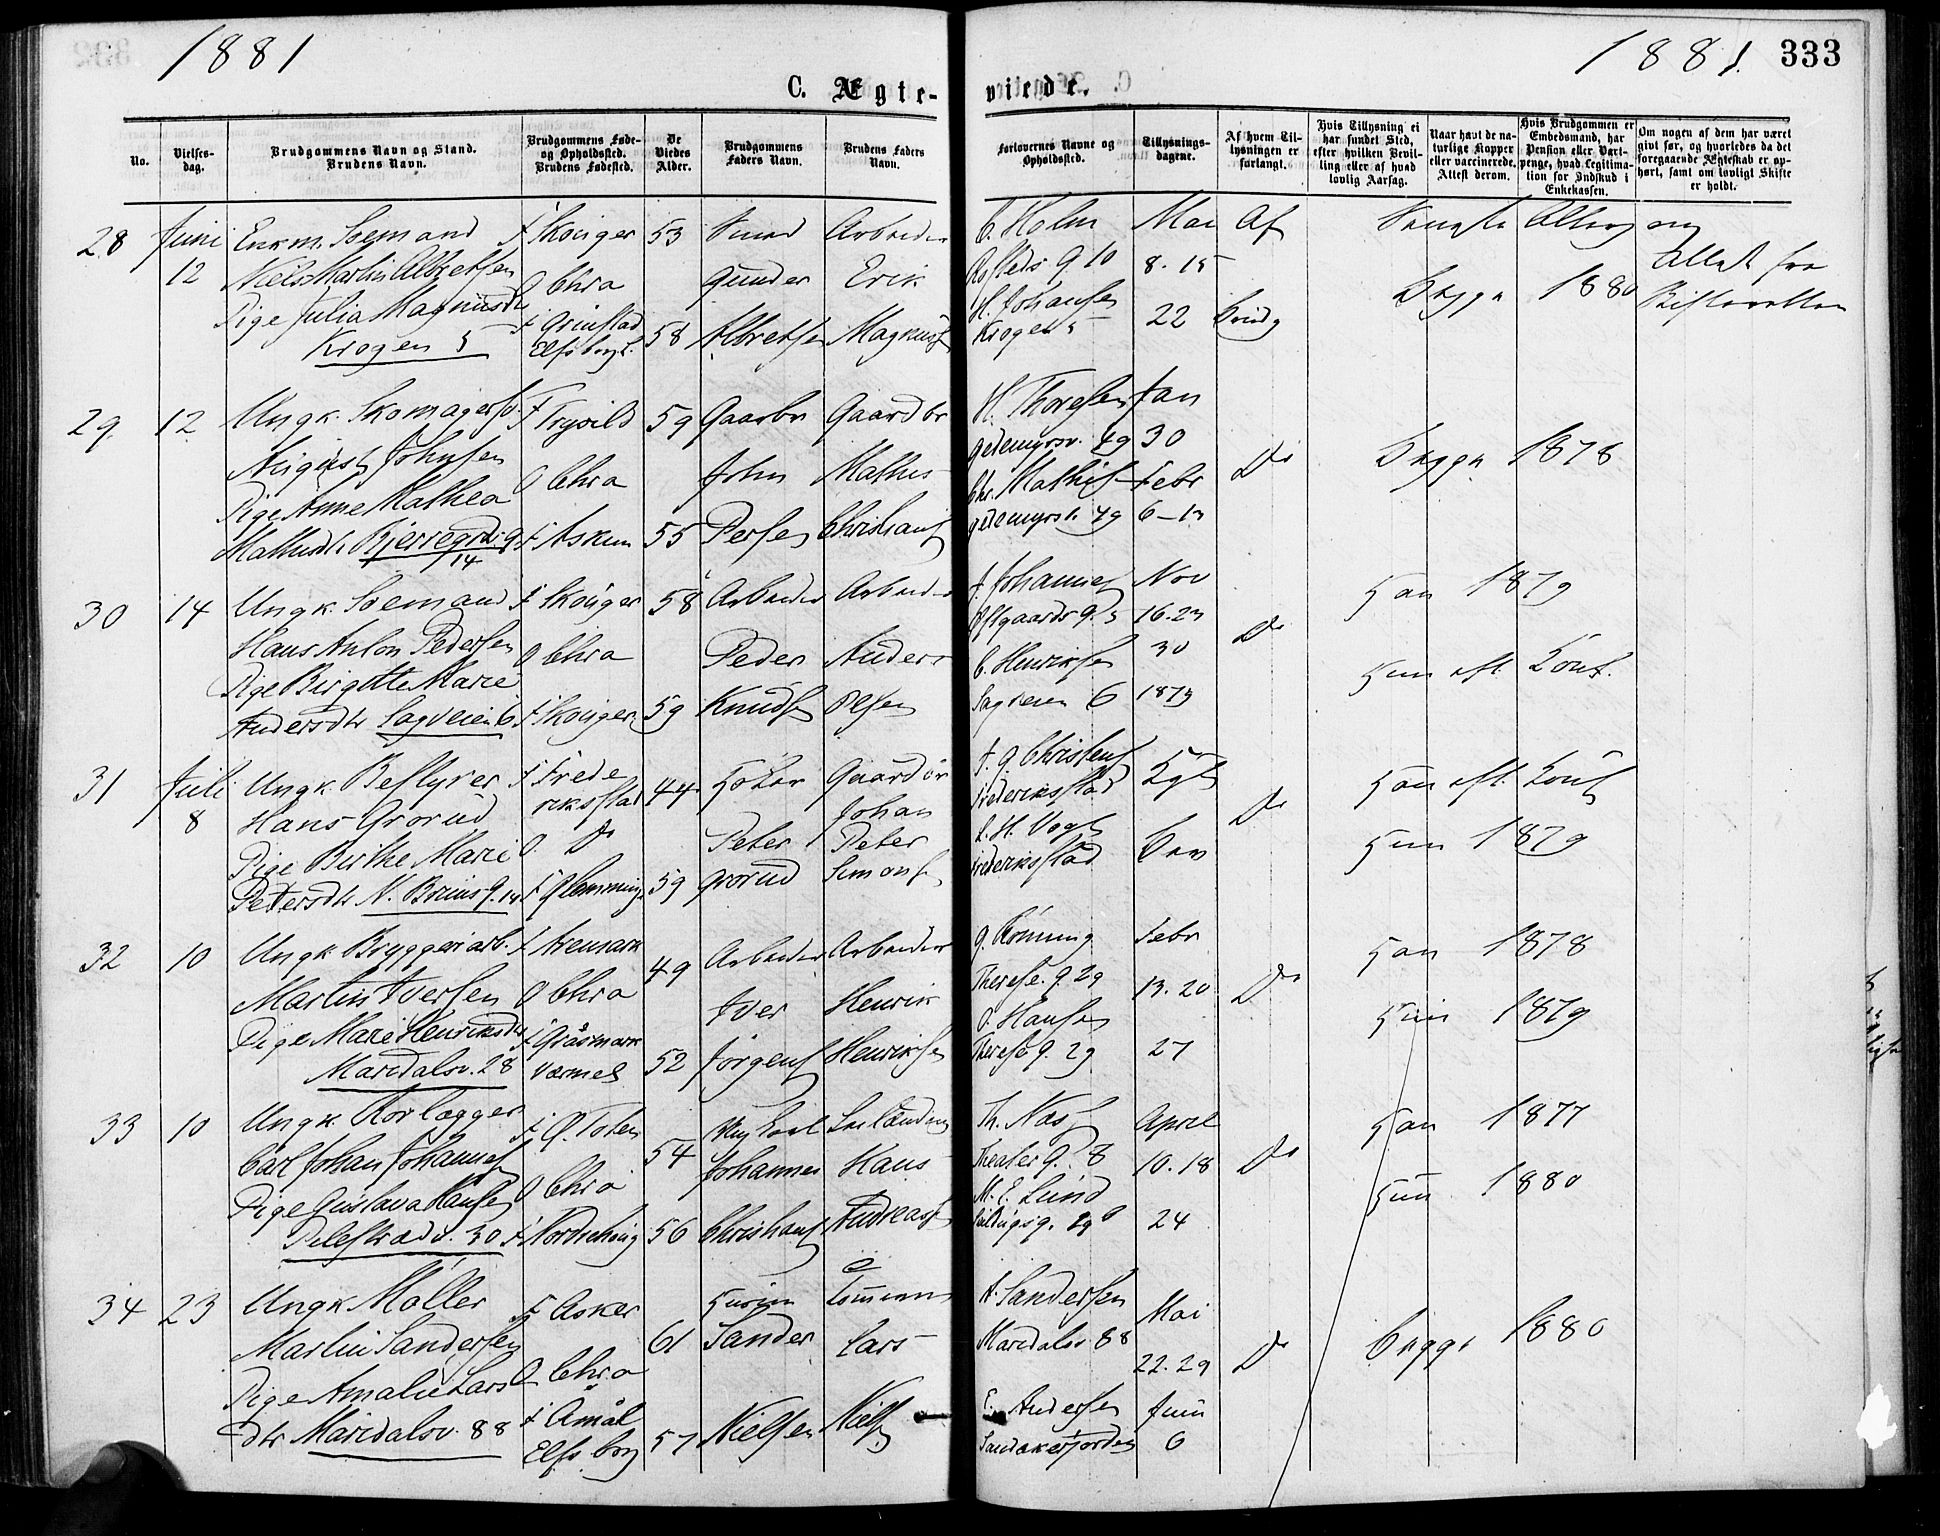 1881
1881.
333
C. Ægte-
viede.
No.
Vielses-
dag.
Brudgommens Navn og Stand.
Brudens Navn.
Brudgommens Føde-
og Opholdssted.
Brudens Fødested.
De
Viedes
Alder.
Brudgommens
Faders Navn.
Brudens Faders
Navn.
Forlovernes Navne og
Opholdssted.
Tillysnings-
dagene.
Af hvem Til-
lysningen er
forlangt.
Hvis Tillysning ei
har fundet Sted,
efter hvilken Bevil-
ling eller af hvad
lovlig Aarsag.
Naar havt de na-
turlige Kopper
eller vaccinerede.
Attest derom.
Hvis Brudgommen er
Embedsmand, har
Pension eller Vart-
penge, hvad Legitima-
tion for Indskud i
Enkekassen.
Om nogen af dem har været
givt før, og hvorledes da det
foregaaende Ægteskab er op-
hørt, samt om lovligt Skifte
er holdt.
28 Juni 12
Enkm. Sømand
Niels Martin Albretsen
Pige Julia Magnusdtr
Krogen 5
f Skouger
O Chra
f Grinstad
Elfsborg l.
53
58
Gunder
Albretsen
Arbeider
Erik
Magnuss
C. Holm
H. Johansen
Krogen 5
Mai
8. 15
22
Af
Brudg
Begge 1880
Attest fra
Skifteretten
29 12
Ungk. Skomagersv.
August Johnsen
Pige Anne Mathea
Mathisdtr Bjerregrds g.
14
F Trysild
O Chra
f Askim
59
55
Gaardbr
John
Persen
Gaardbr
Mathis
Christians
H. Thoresen
Gedemyrsv. 49
Chr. Mathis
Gedemyrsv. 49
Jan
30
Febr
6-13
Do
Begge 1878
30 14
Ungk. Sømand
Hans Anton Pedersen
Pige Birgitte Marie
Andersdtr Sagveien 6
f Skouger
O Chra
f Skouger
58
59
Arbeider
Peder
Knuds
Arbeider
Anders
Olsen
J. Johannes
C. Henriksen
Sagveien 6
Nov
16. 23
30
1879
Do
Han 1879
Hun efl. Konf.
31 Juli 8
Ungk. Bestyrer
Hans Grorud
Pige Birthe Marie
Petersdtr N. Bruns g. 14
f Frede
riksstad
O. Do
f Glemminge
44
59
Peter
Grorud
Gaardbr
Johan
Peter
Simons
F. G. Christens
Frederiksstad
L. H. Vogt
Frederiksstad
Kgl
Bev
Do
Han efl. Konf
Hun 1879
32 10
Ungk Bryggeriarb.
Martin Iversen
Pige Marie Henriksdtr
Maridalsv. 28
f Aremark
O Chra
f Gräsmark
Vermel
49
52
Arbeider
Iver
Jørgens
Arbeider
Henrik
Henriksen
G. Rønning
Therese. g. 29
O. Hansen
Therese g. 29
Febr
13. 20
27
Do
Han 1878
Hun 1879
33 10
Ungk. Rørlægger
Carl Johan Johannes
Pige Gustava Hansen
Pilestræd. 30
f Ø. Toten
O Chra
f Nordrehoug
54
56
Johannes
Christians
Hans
Andreas
Th. Næs
Theater g. 8
M. E. Lund
April
10. 18
24
Do
Han 1877
Hun 1880
34 23
Ungk Møller
Martin Sandersen
Pige Amalie Lars
dtr Maridalsv. 88
f Asker
O Chra
f Amål
Elfsborg
61
57
Husm
Sander
Nielsen
Tømmerm
Lars
Niels
A. Sandersen
Maridalsv 88
E. Andersen
Sandakerjordet
Mai
22. 29
Juni
6
Do
Begge 1880